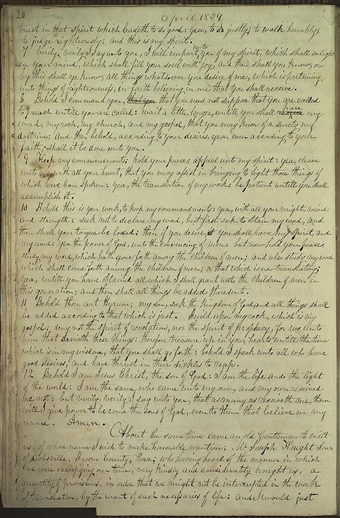 20 April 1829
trust in that spirit which leadeth to do good: yea, to do justly, to walk humbly,
to judge righteously; and this is my spirit.
7 Verily, verily I say unto you, I will impart unto you of my spirit, which shall enlighten
your mind, which shall fill your soul with joy, and then shall you know, or
by this shall ye know, all things whatsoever you desire of me, which is pertaining
unto things of righteousness, in faith believing in me that you shall receive.
8 Behold I command you, that you need not suppose that you are called
to preach until you are called: wait a little longer, until you shall have my
word, my rock, my church, and my gospel, that you may know of a surety my
doctrine; and then behold, according to your desires, yea, even according to your
faith, shall it be done unto you.
9 Keep my commandments; hold your peace; appeal unto my spirit: yea, cleave
unto me with all your heart, that you may assist in bringing to light those things of
which have been spoken: yea, the translation of my work: be patient until you shall
accomplish it.
10 Behold this is your work, to keep my commandments: yea, with all your might, mind
and strength: seek not to declare my word, but first seek to obtain my word, and
then shall your tongue be loosed: then if you desire you shall have my spirit, and
my word: yea the power of God, unto the convincing of men: but now hold your peace;
study my word, which hath gone forth among the children of men; and also study my word
which shall come forth among the children of men; or that which is now translating;
yea, until you have obtained all which I shall grant unto the children of men in
this generation; and then shall all things be added thereunto.
11 Behold thou art Hyrum, my son; seek the kingdom of God and all things shall
be added according to that which is just. Build upon my rock, which is my
gospel; deny not the spirit of revelation, nor the spirit of prophecy, for wo unto
him that denieth these things: therefore treasure up in your hearts until the time
which is in my wisdom, that you shall go forth: behold I speak unto all who have
good desires, and have thrust in their sickles to reap.
12 Behold I am Jesus Christ, the son of God: I am the life and the light
of the world: I am the same who came unto my own and my own received
me not: but verily verily I say unto you, that as many as receiveth me, them
will I give power to become the sons of God, even to them that believe on my
name. Amen.
About the same time came an old Gentleman to visit
us, of whose name I wish to make honorable mention; Mr Joseph Knight Senr
of Colesville, Broom County, Penn: who having heard of the manner in which
we were occupying our time, very kindly and considerately brought us, a
quantity of provisions, in order that we might not be interrupted in the work
of translation, by the want of such necessaries of life: and I would just